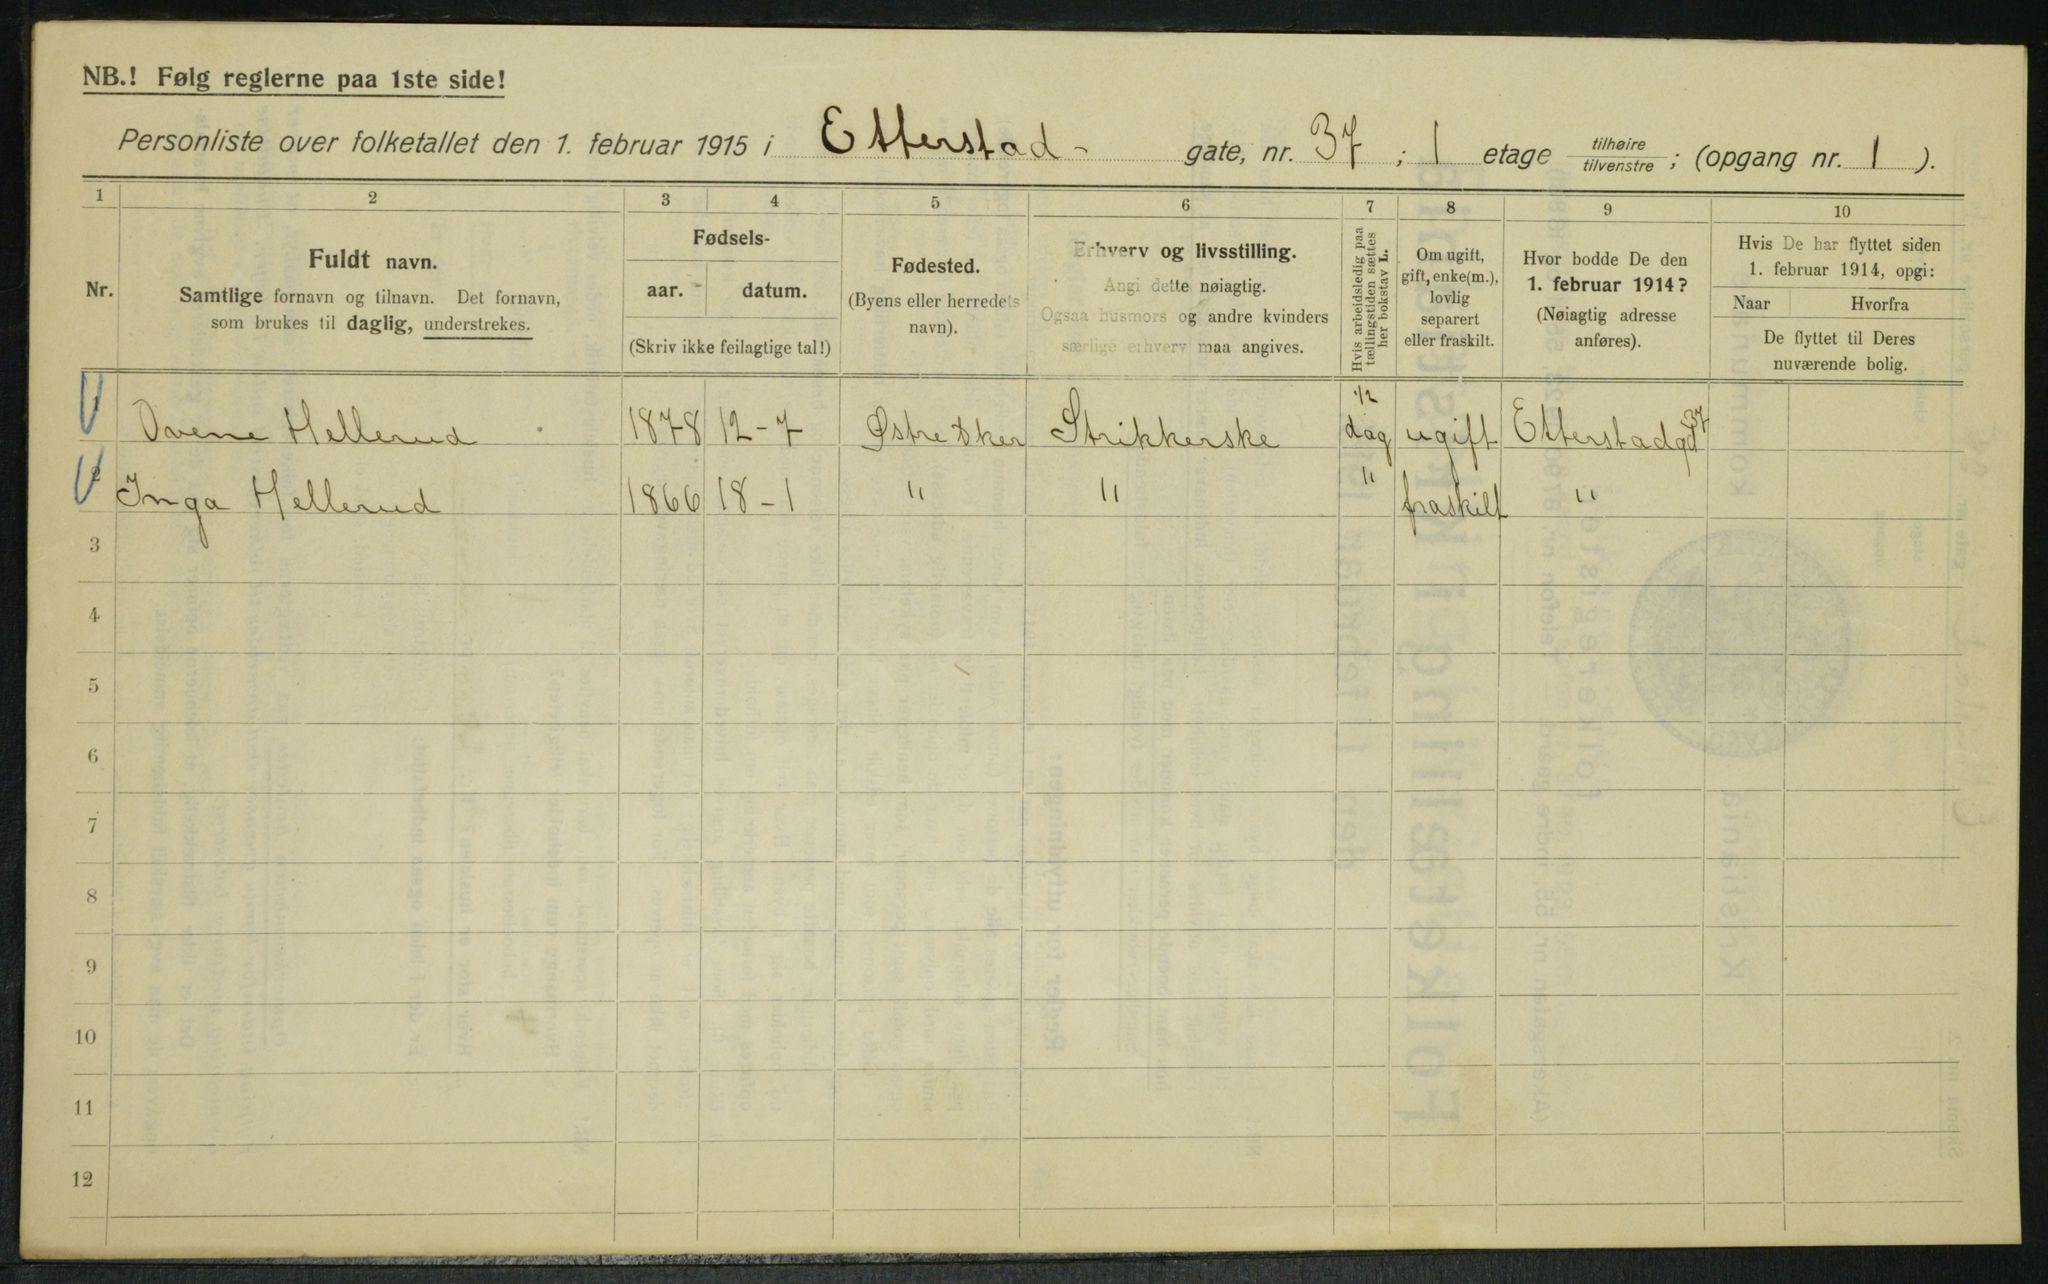 NB.! Følg reglerne paa 1ste side!
Personliste over folketallet den 1. februar 1915 i Etterstad- gate, nr. 37 ; 1 etage tilhøire tilvenstre ; (opgang nr. 1 ).
1 2 3 4 5 6 7 8 9 10
Nr.
Fuldt navn.
Samtlige fornavn og tilnavn. Det fornavn,
som brukes til daglig, understrekes.
Fødsels-
aar. datum.
(Skriv ikke feilagtige tal!)
Fødested.
(Byens eller herredets
navn).
Erhverv og livsstilling.
Angi dette nøiagtig.
Ogsaa husmors og andre kvinders
særlige erhverv maa angives.
Hvis arbeidsledig paa
tællingstiden sættes
her bokstav L.
Om ugift,
gift, enke(m.),
lovlig
separert
eller fraskilt.
Hvor bodde De den
1. februar 1914?
(Nøiagtig adresse
anføres).
Hvis De har flyttet siden
1. februar 1914, opgi:
Naar Hvorfra
De flyttet til Deres
nuværende bolig.
Hellerud 1878 12-7 Østre Aker Strikkerske 1/2 dag ugift Etterstadgd 37
2 Inga Hellerud 1866 18-1 " " " fraskilt "
3
4
5
6
7
8
9
10
11
12